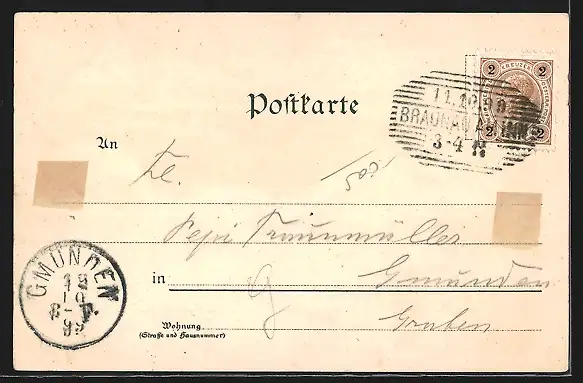 2 KREUZER 2
2 2
11.10.99
BRAUNAU A. INN
3-4
Postkarte
An
Pepi Traunmüller
in Gmunden
Graben
GMUNDEN
12
10
99
Wohnung
(Straße und Hausnummer)